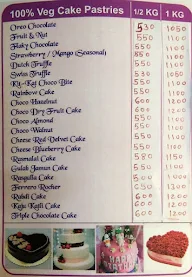 100% Veg Cake Pastries 1/2 KG 1 KG
Oreo Chocolate 530 1050
Fruit & Nut 550 1100
Flaky Chocolate 550 1100
Strawberry / Mango (Seasonal) 550 1100
Dutch Truffle 550 1100
Swiss Truffle 530 1050
Kit-Kat Choco Bite 550 1100
Rainbow Cake 550 1100
Choco Hazelnut 600 1200
Choco Dry Fruit Cake 600 1200
Choco Almond 550 1100
Choco Walnut 550 1100
Cheese Red Velvet Cake 550 1100
Cheese Blueberry Cake 550 1100
Rasmalai Cake 580 1150
Gulab Jamun Cake 550 1100
Rasgulla Cake 550 1100
Ferrero Rocher 650 1300
Rabdi Cake 600 1200
Kaju Katli Cake 600 1200
Triple Chocolate Cake 600 1200